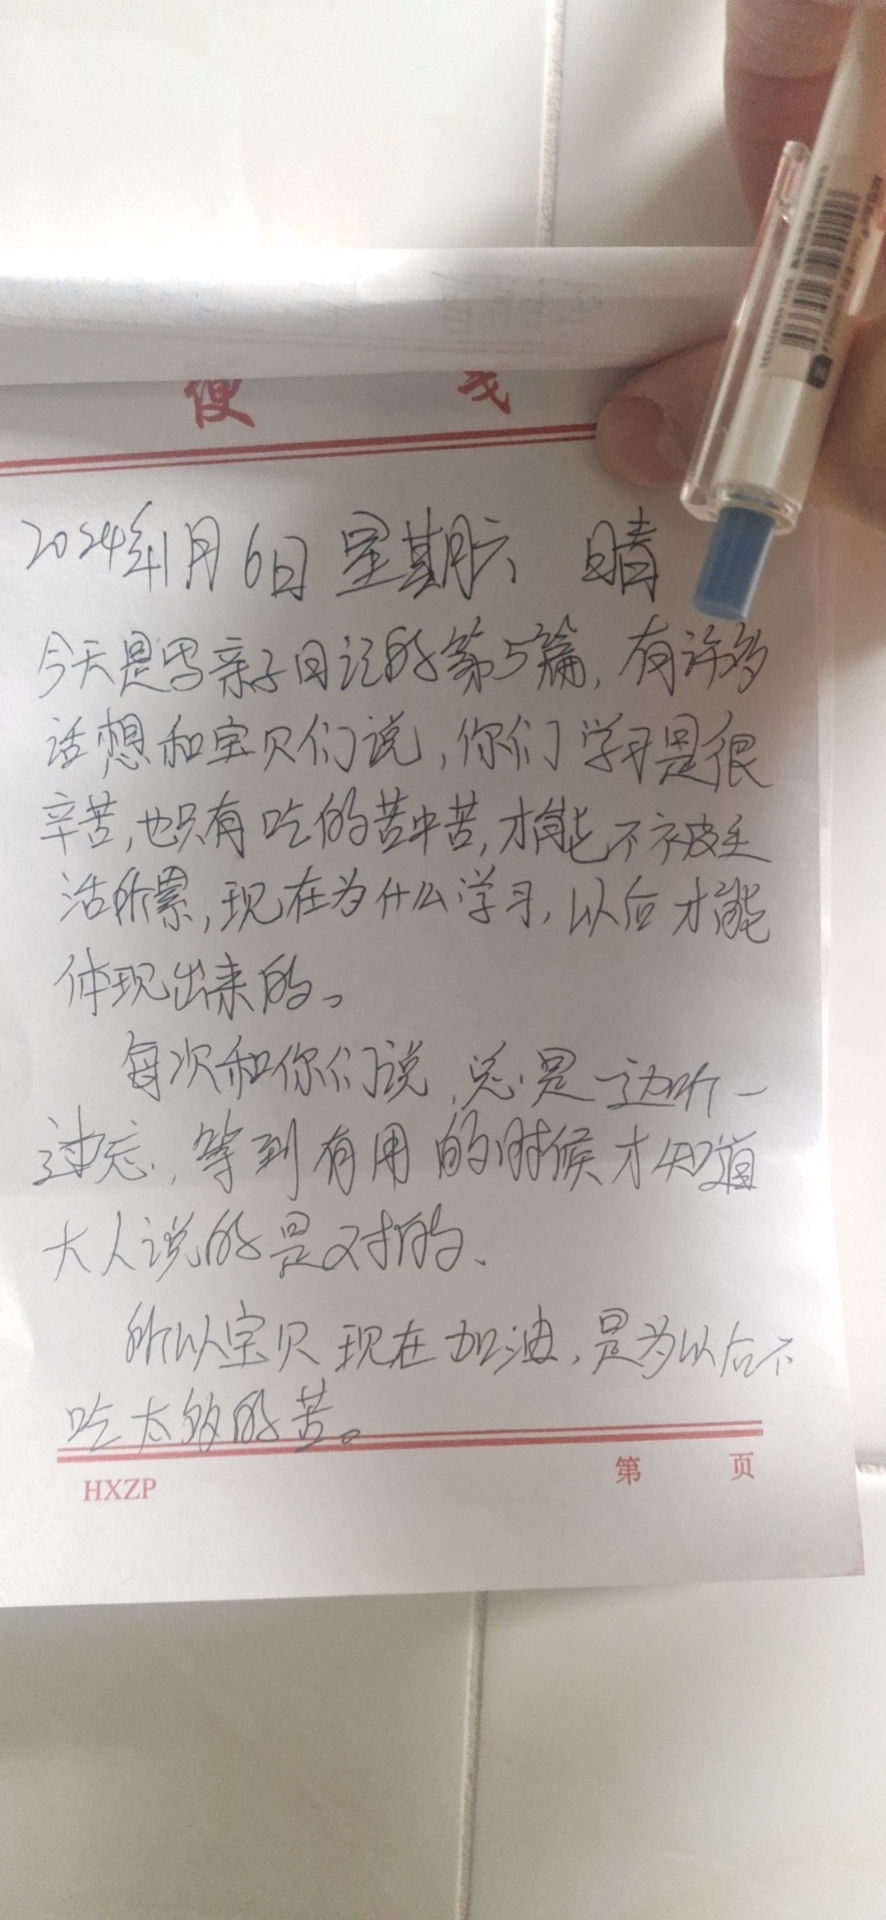 便 笺
2024年1月6日 星期六 晴
今天是写亲子日记的第5篇,有许多
话想和宝贝们说,你们学习是很
辛苦,也只有吃的苦中苦,才能不被生
活所累,现在为什么学习,以后才能
体现出来的。
每次和你们说,总是一边听一
边忘,等到有用的时候才知道
大人说的是对的、
所以宝贝现在加油,是为以后不
吃太多的苦。
HXZP 第 页